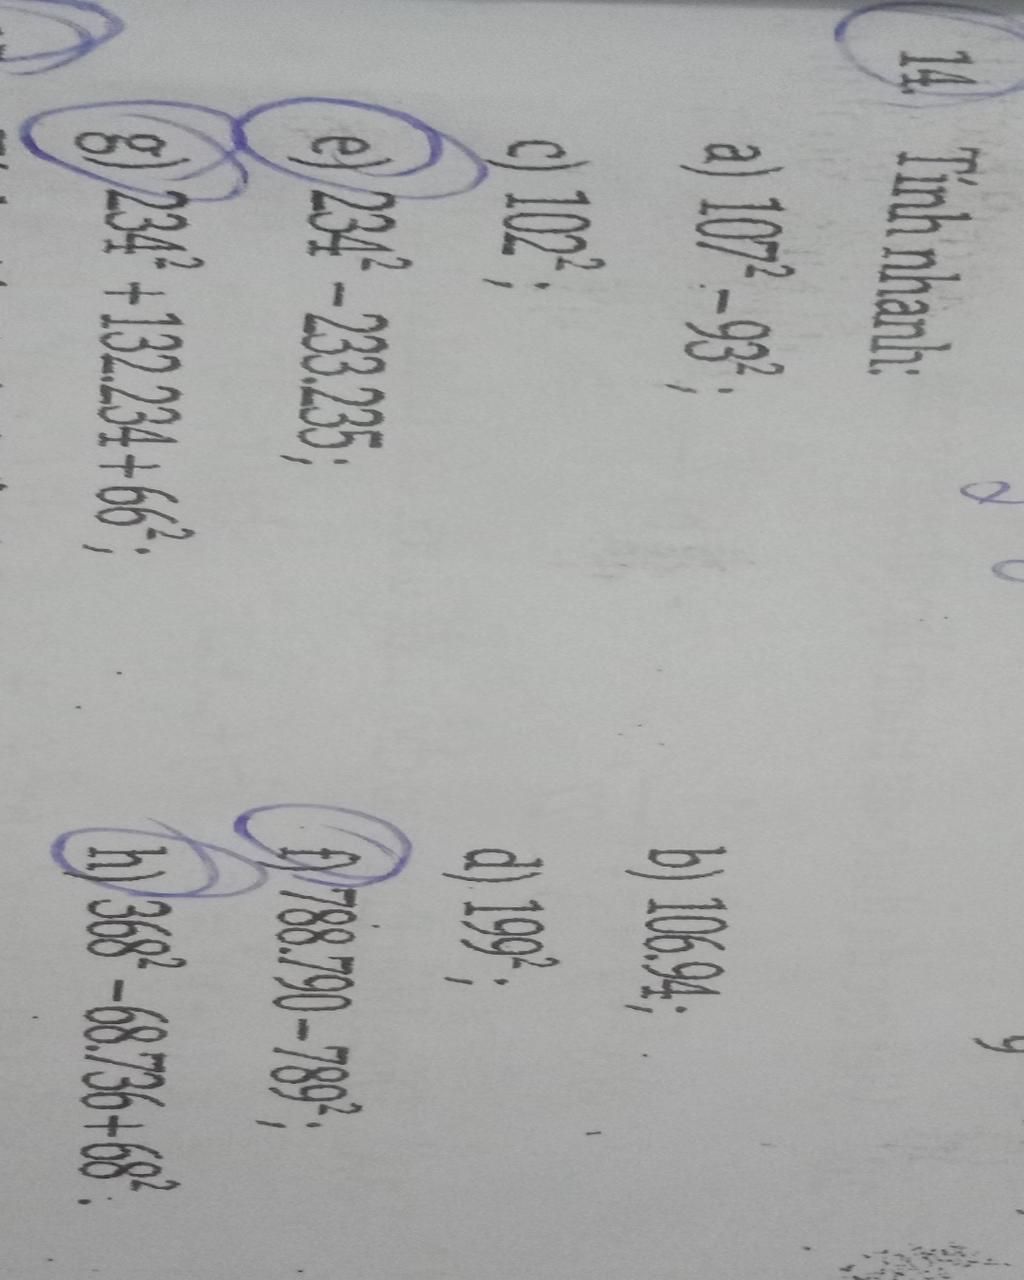 14. Tính nhanh:
a) 107² – 93²;
b) 106.94;
c) 102²;
d) 199²;
e) 234² – 233.235;
f) 788.790 – 789²;
g) 234² + 132.234 + 66²;
h) 368² – 68.736 + 68².